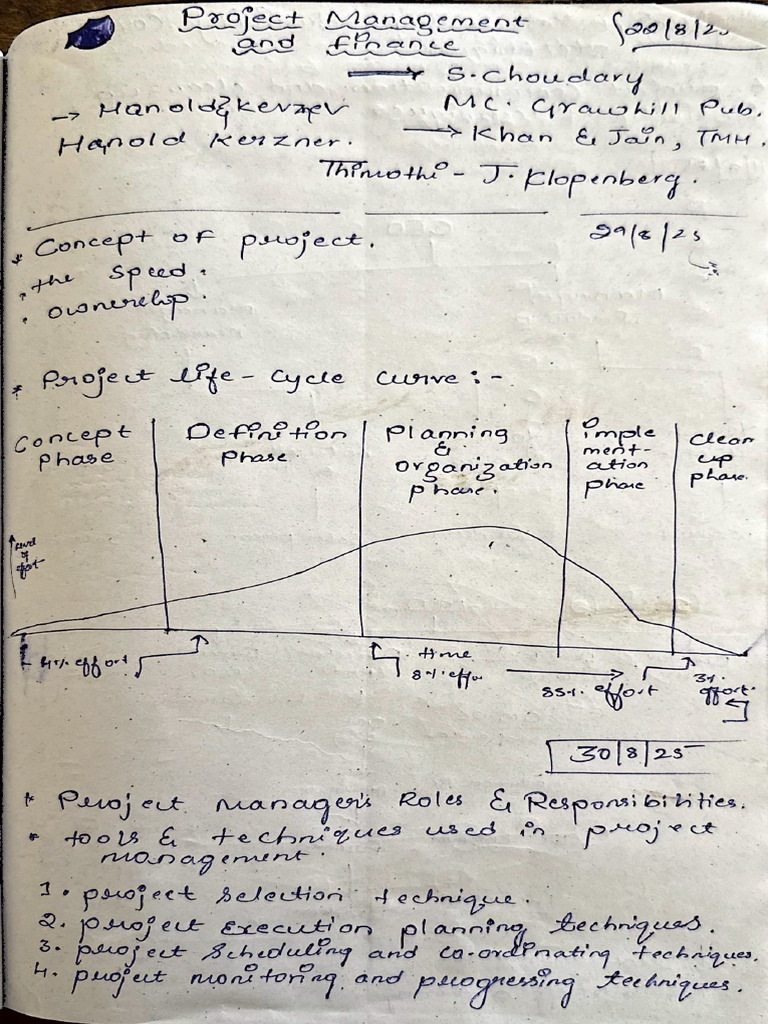 Project Management 22/8/25
and finance
→ S. Choudary
→ Hanold & Kerzev MC. Grawhill Pub.
Hanold Kerzner. → Khan & Jain, TMH.
Thimothi - J. Klopenberg.
* Concept of project. 29/8/25
. the speed.
. ownership.
* Project life - cycle curve :-
Concept phase
Definition phase
Planning & organization phase.
imple ment- ation phase
clean up phase.
level of effort
4% effort
time
8% effo
85% effort
3% effort.
30/8/25
* Project manager's Roles & Responsibilities.
* tools & techniques used in project
management.
1. project selection technique.
2. project execution planning techniques.
3. project scheduling and co-ordinating techniques.
4. project monitoring and progressing techniques.